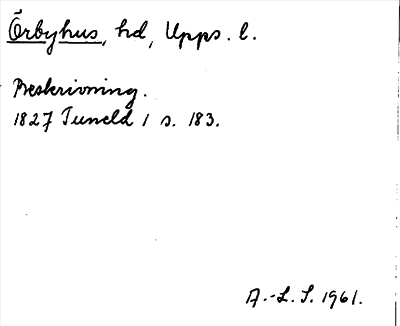 Örbyhus, hd, Upps. l.
Beskrivning.
1827 Tuneld 1 s. 183.
A.-L. S. 1961.